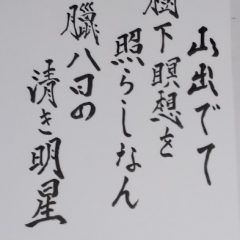 山出でて
樹下瞑想を
照らしなん
臘八日の
清き明星